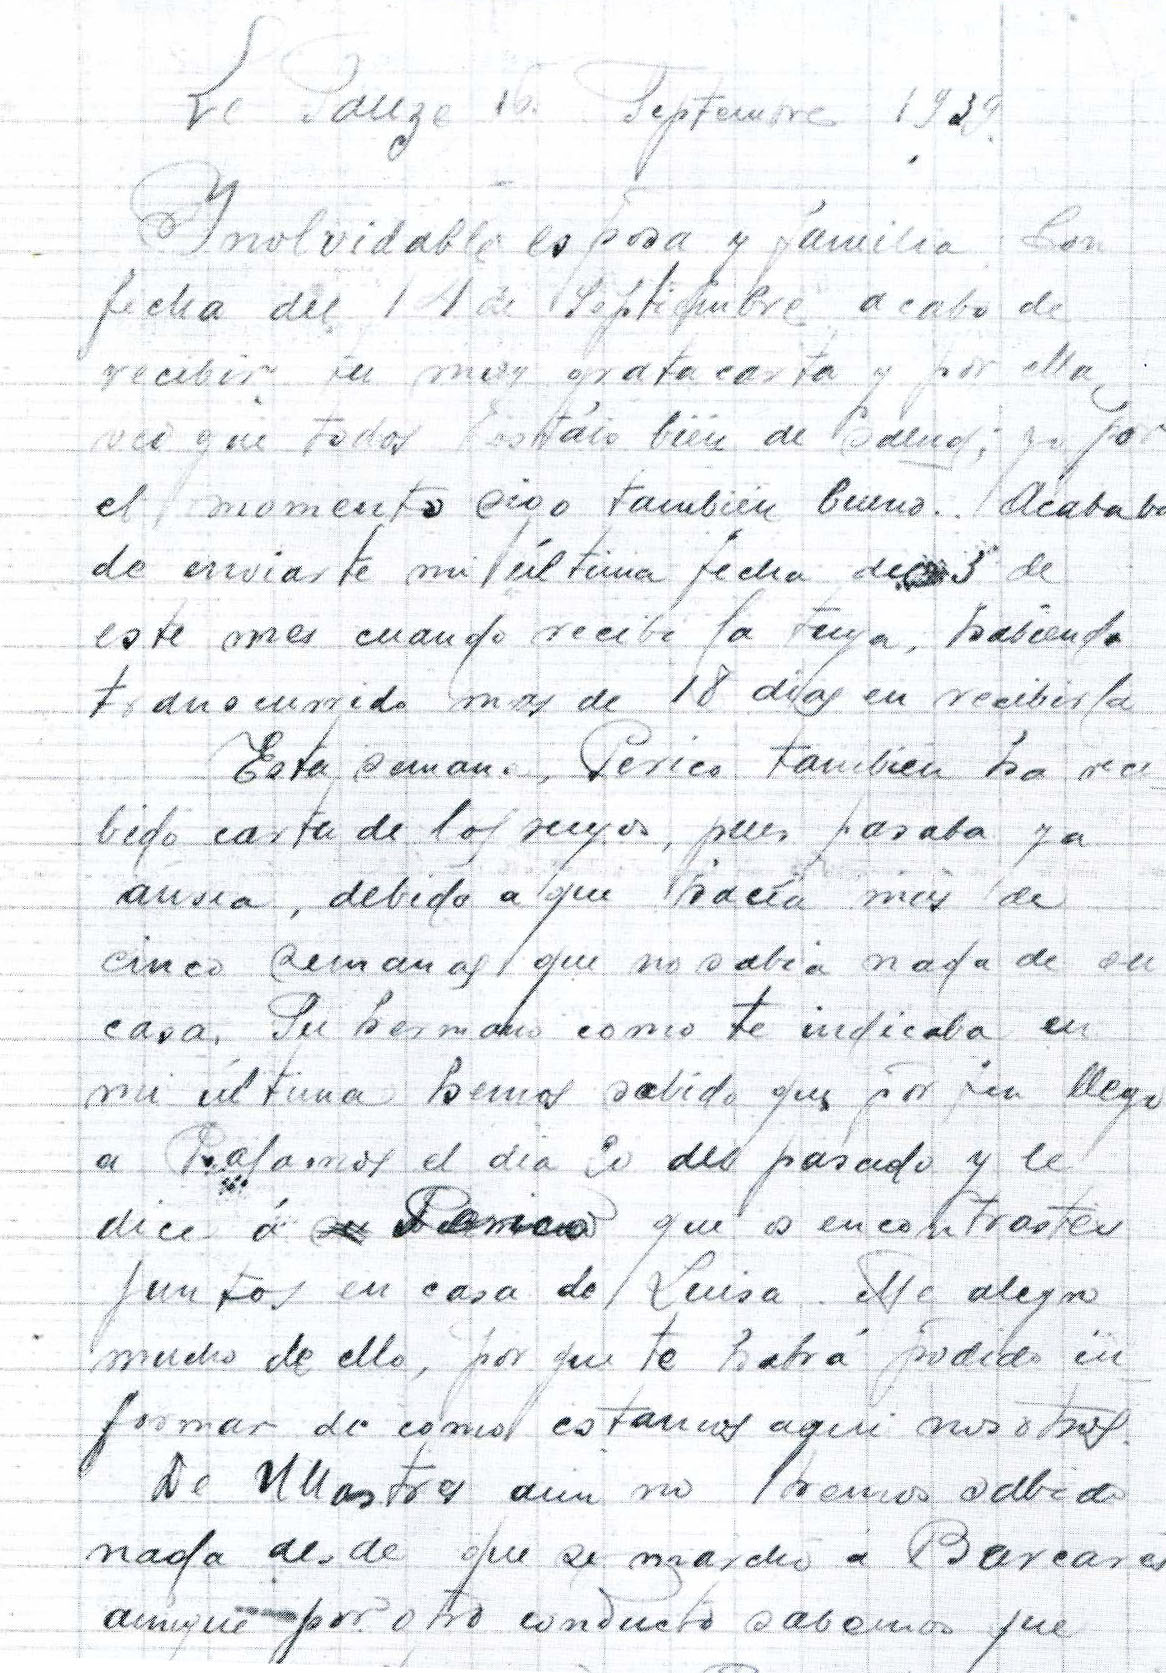 Le Pouze 16. Septembre 1939.
Ynolvidable esposa y familia Con
fecha del 14 de Septiembre acabo de
recibir tu muy grata carta y por ella
veo que todos Estáis bién de Salud; yo por
el momento sigo tambien bueno. Acababa
de enviarte mi última fecha del 3 de
este mes cuando recibi la tuya, habiendo
transcurrido mas de 18 dias en recibirla
Esta semana, Perico tambien ha reci-
bido carta de los suyos, pues pasaba ya
ansia, debido a que hacía más de
cinco semanas que no sabia nada de su
casa. Tu hermano como te indicaba en
mi última hemos sabido que por fin llego
a Palamos el dia 20 del pasado y le
dice á Perico que os encontrasteis
juntos en casa de Luisa. Me alegro
mucho de ello, por que te habrá podido in-
formar de como estamos aqui nosotros.
De Mastres aun no hemos sabido
nada desde que se marchó a Barcares
aunque por otro conducto sabemos que